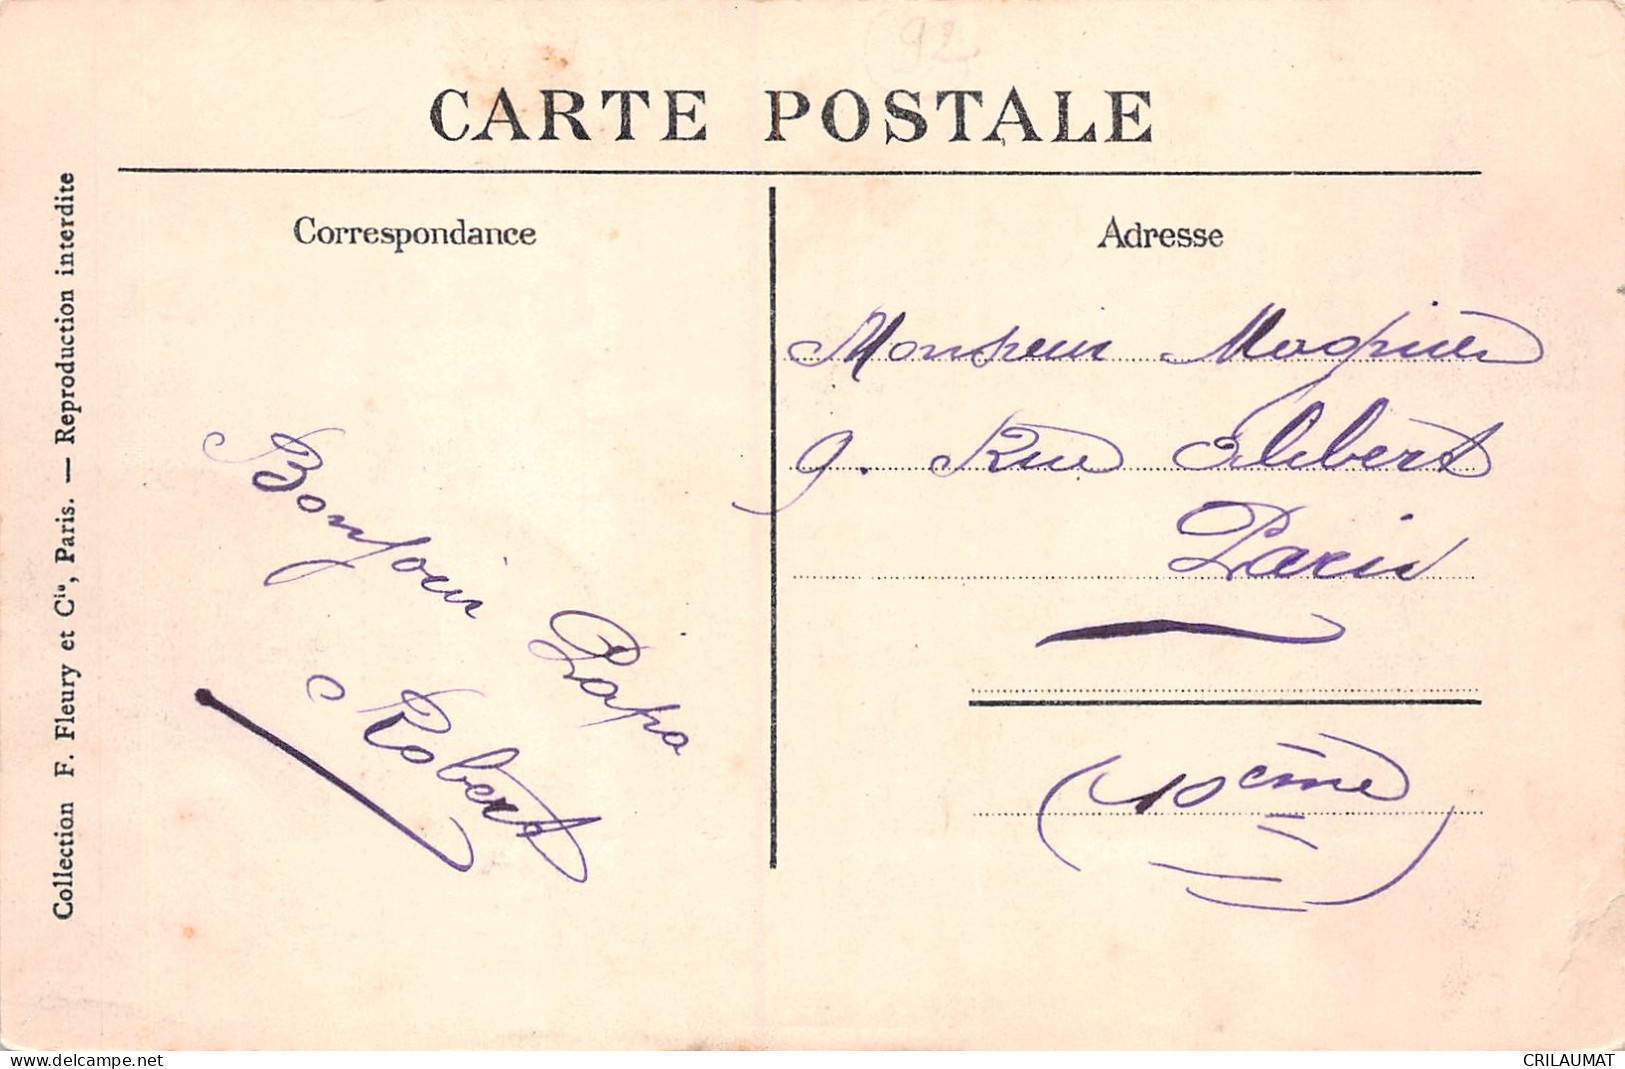 (92
CARTE POSTALE
Collection F. Fleury et Cie, Paris. — Reproduction interdite
Correspondance
Bonjour Papa
Robert
Adresse
Monsieur Magnier
9. Rue Alibert
Paris
(10ème)
www.delcampe.net
CRILAUMAT